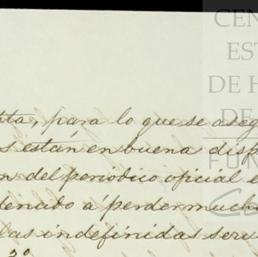 CEN
ES
DE H
DE
FUN
para lo que se aseg
s están en buena disp
n del periodico oficial e
denado a perder much
las indefinidas sere
2º